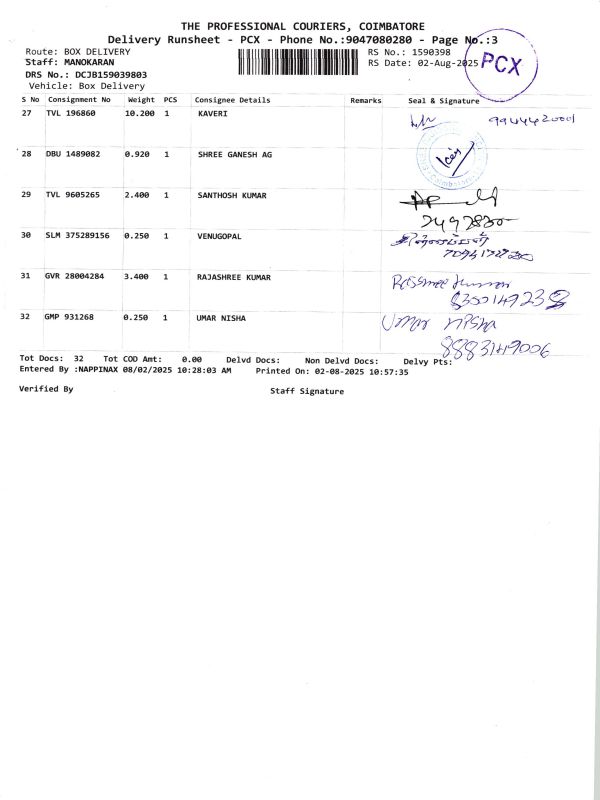 THE PROFESSIONAL COURIERS, COIMBATORE
Delivery Runsheet - PCX - Phone No.:9047080280 - Page No.:3
Route: BOX DELIVERY RS No.: 1590398
Staff: MANOKARAN RS Date: 02-Aug-2025
PCX
DRS No.: DCJB159039803
Vehicle: Box Delivery
S No Consignment No Weight PCS Consignee Details Remarks Seal & Signature
27 TVL 196860 10.200 1 KAVERI 9944420001
28 DBU 1489082 0.920 1 SHREE GANESH AG
29 TVL 9605265 2.400 1 SANTHOSH KUMAR
30 SLM 375289156 0.250 1 VENUGOPAL
31 GVR 28004284 3.400 1 RAJASHREE KUMAR
32 GMP 931268 0.250 1 UMAR NISHA Umar Nisha
8883149006
Tot Docs: 32 Tot COD Amt: 0.00 Delvd Docs: Non Delvd Docs: Delvy Pts:
Entered By :NAPPINAX 08/02/2025 10:28:03 AM Printed On: 02-08-2025 10:57:35
Verified By Staff Signature